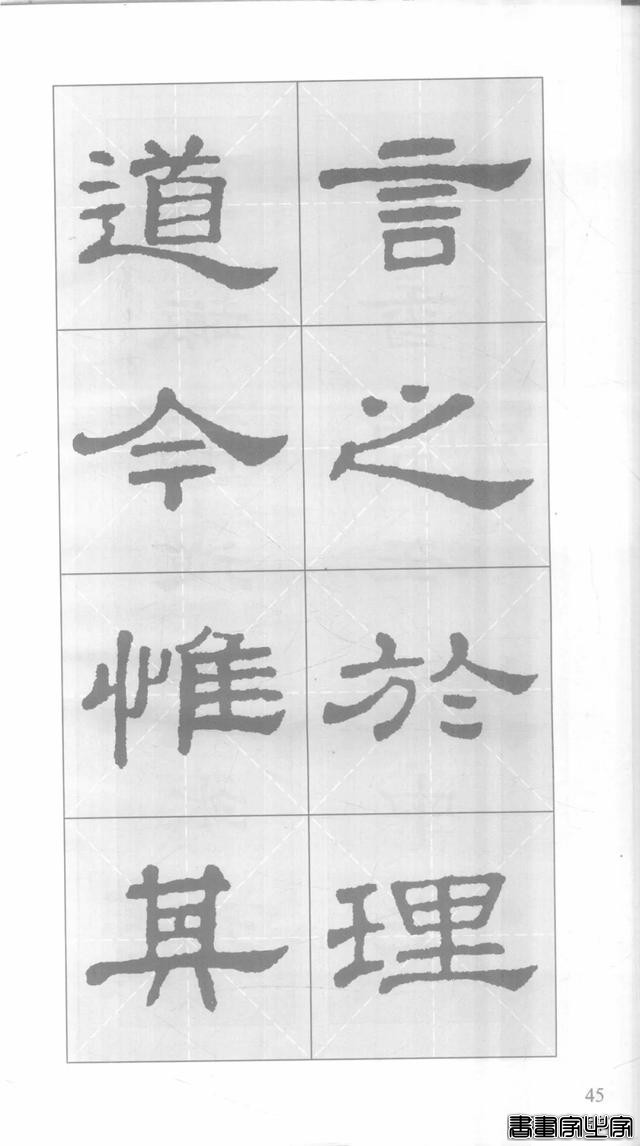 言之於理
道今惟其
45
書畫家必字